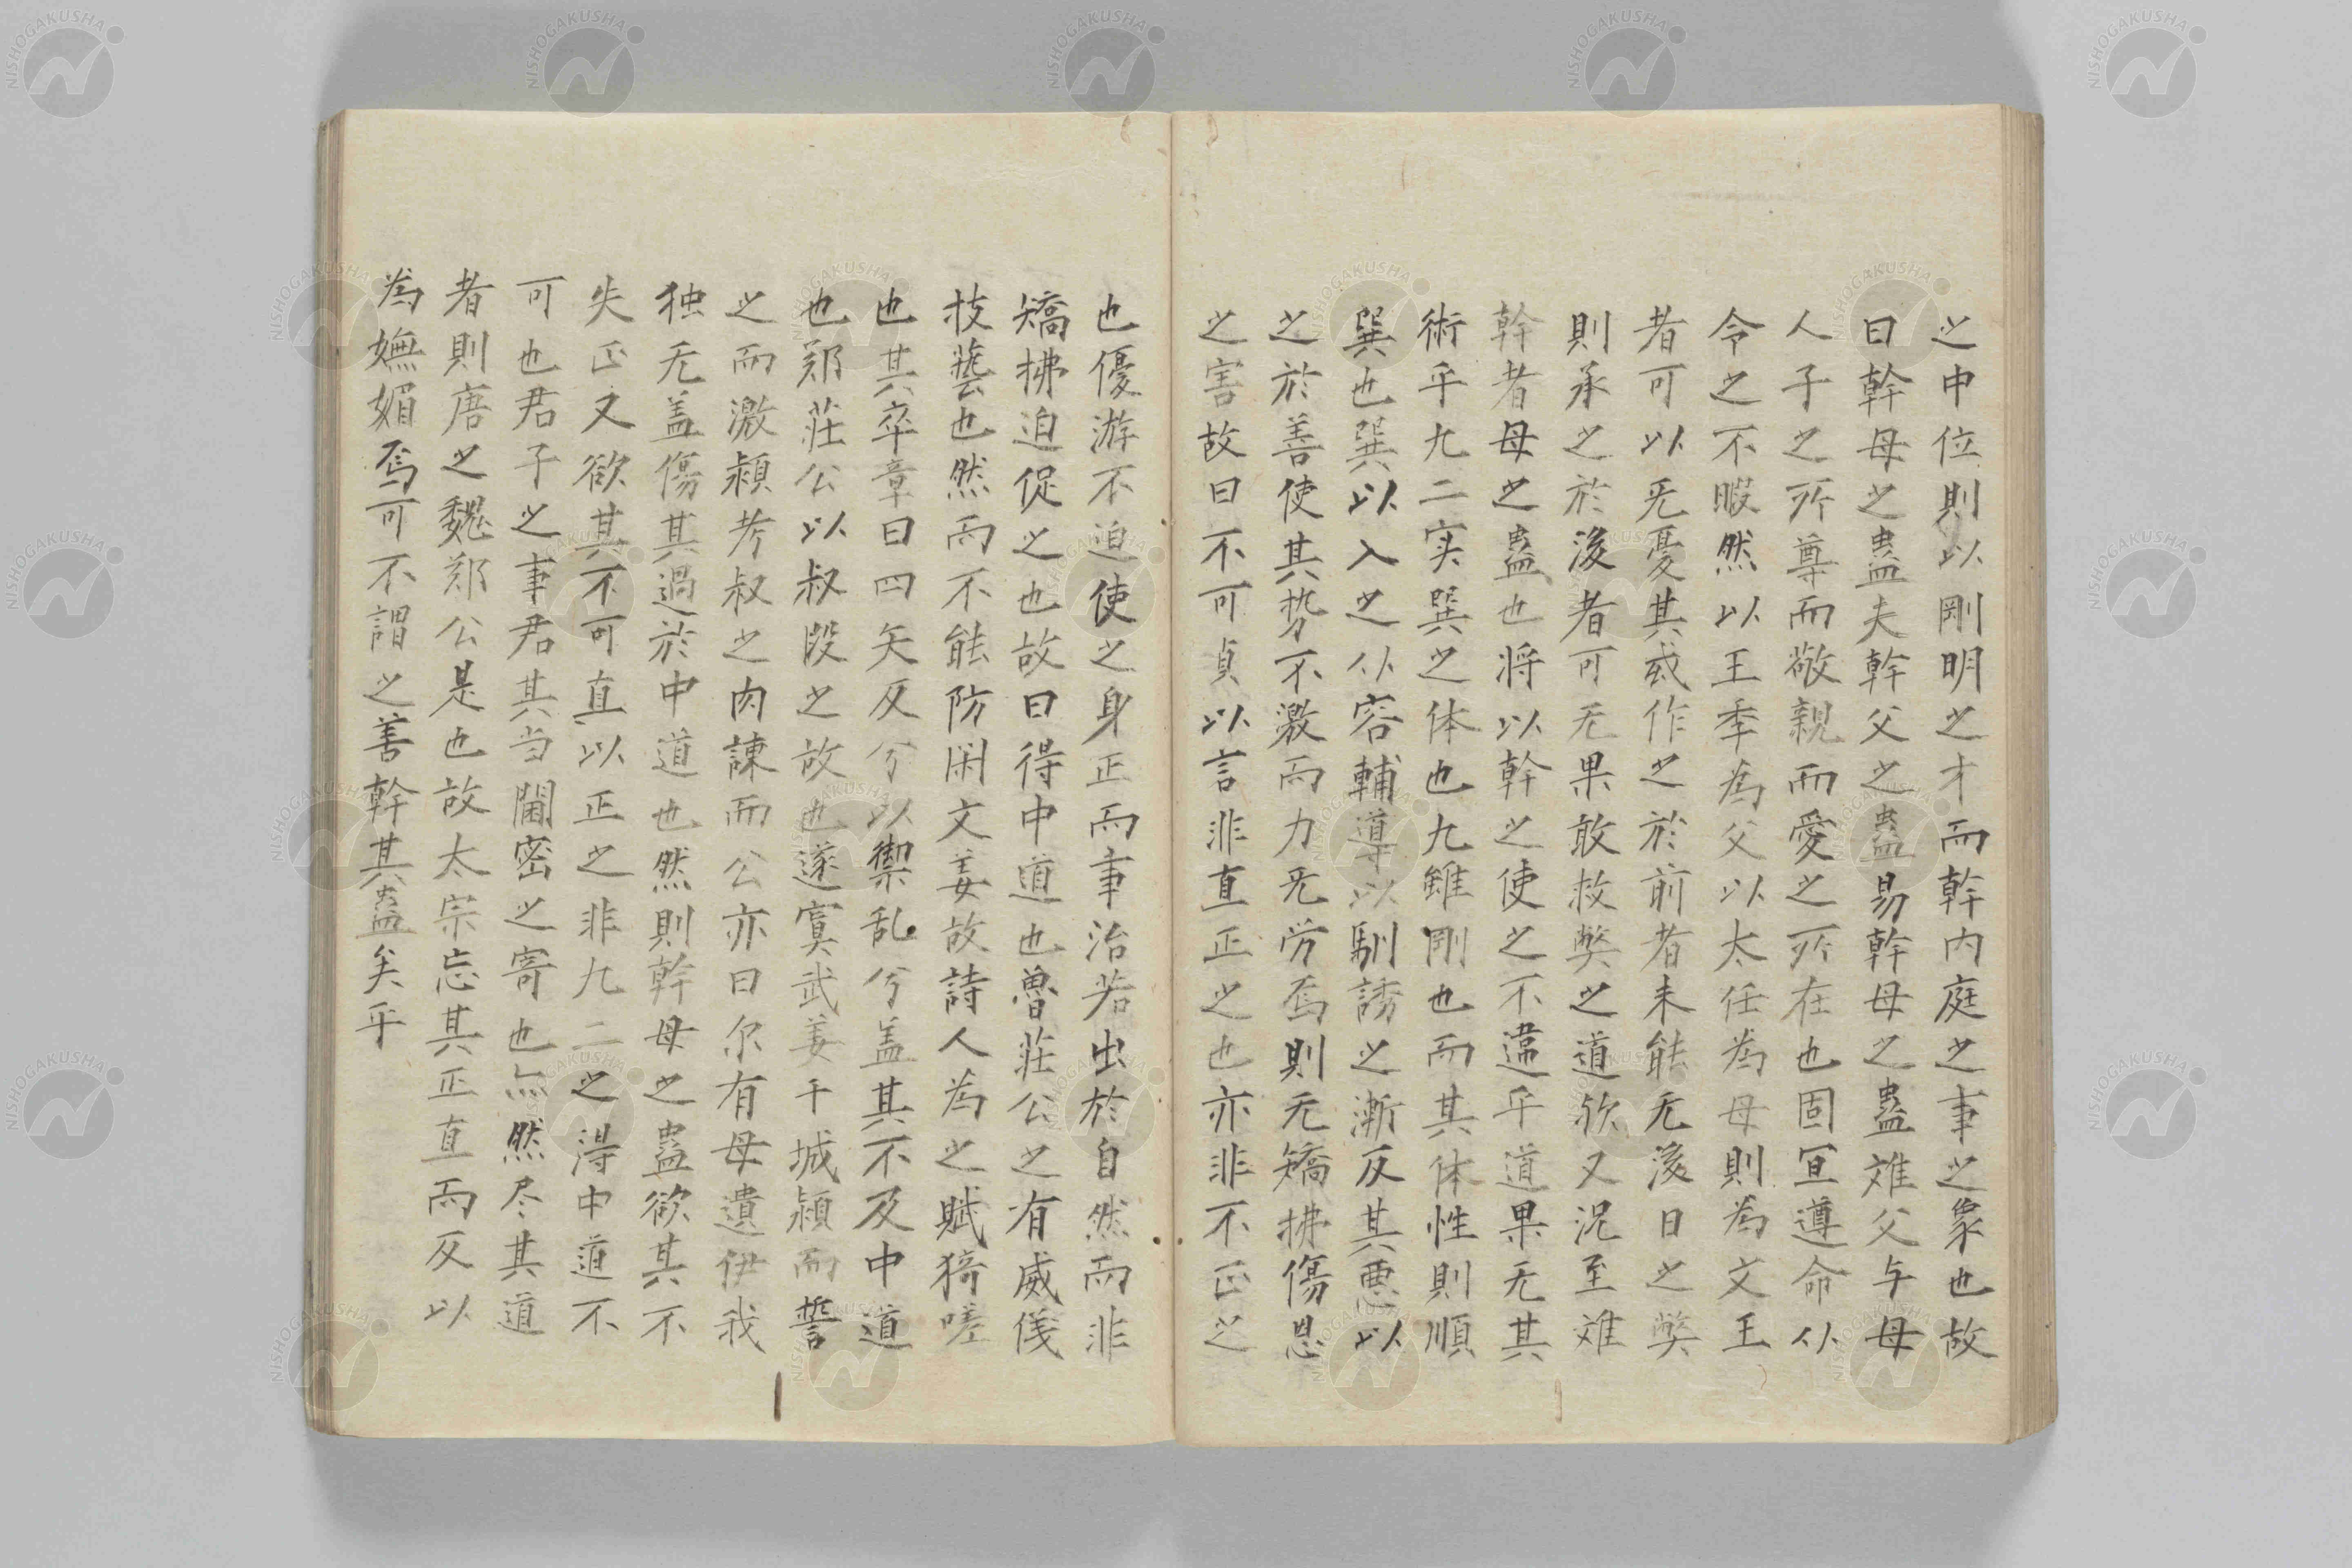 之中位則以剛明之才而幹内庭之事之象也故
曰幹母之蠱夫幹父之蠱易幹母之蠱难父与母
人子之所尊而敬親而愛之所在也固宜遵命仏
令之不暇然以王季為父以太任為母則為文王
者可以旡憂其或作之於前者未能无後日之弊
則承之於後者可无果敢救弊之道欤又况至难
幹者母之蠱也将以幹之使之不違乎道果无其
術乎九二实巽之体也九雖剛也而其体性則順
巽也巽以入之仏容輔導以馴誘之漸反其悪以
之於善使其势不激而力旡労焉則无矯拂傷恩
之害故曰不可貞以言非直正之也亦非不正之
也優游不迫使之身正而事治若出於自然而非
矯拂迫促之也故曰得中道也魯荘公之有威儀
技藝也然而不能防閑文姜故詩人為之賦猗嗟
也其卒章曰四矢反兮以禦乱兮盖其不及中道
也郑荘公以叔段之故也遂寘武姜于城潁而誓
之而激潁考叔之肉諌而公亦曰尔有母遺伊我
独无盖傷其過於中道也然則幹母之蠱欲其不
失正又欲其不可直以正之非九二之得中道不
可也君子之事君其当闔密之寄也亦然尽其道
者則唐之魏郑公是也故太宗忘其正直而反以
為嫵媚焉可不謂之善幹其蠱矣乎
NISHOGAKUSHA